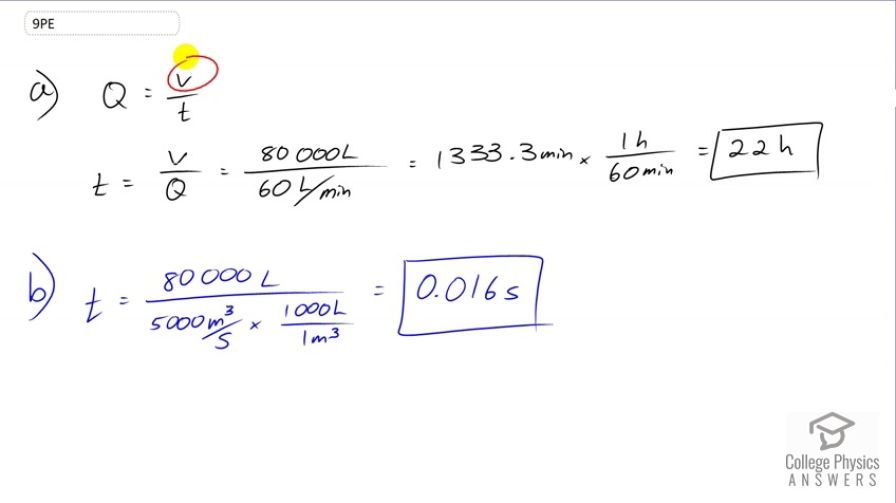 9PE
a) Q = v/t
t = v/Q = 80 000L / 60 L/min = 1333.3 min × 1h/60min = 22h
b) t = 80 000 L / 5000 m³/s × 1000L/1m³ = 0.016 s
College Physics
ANSWERS